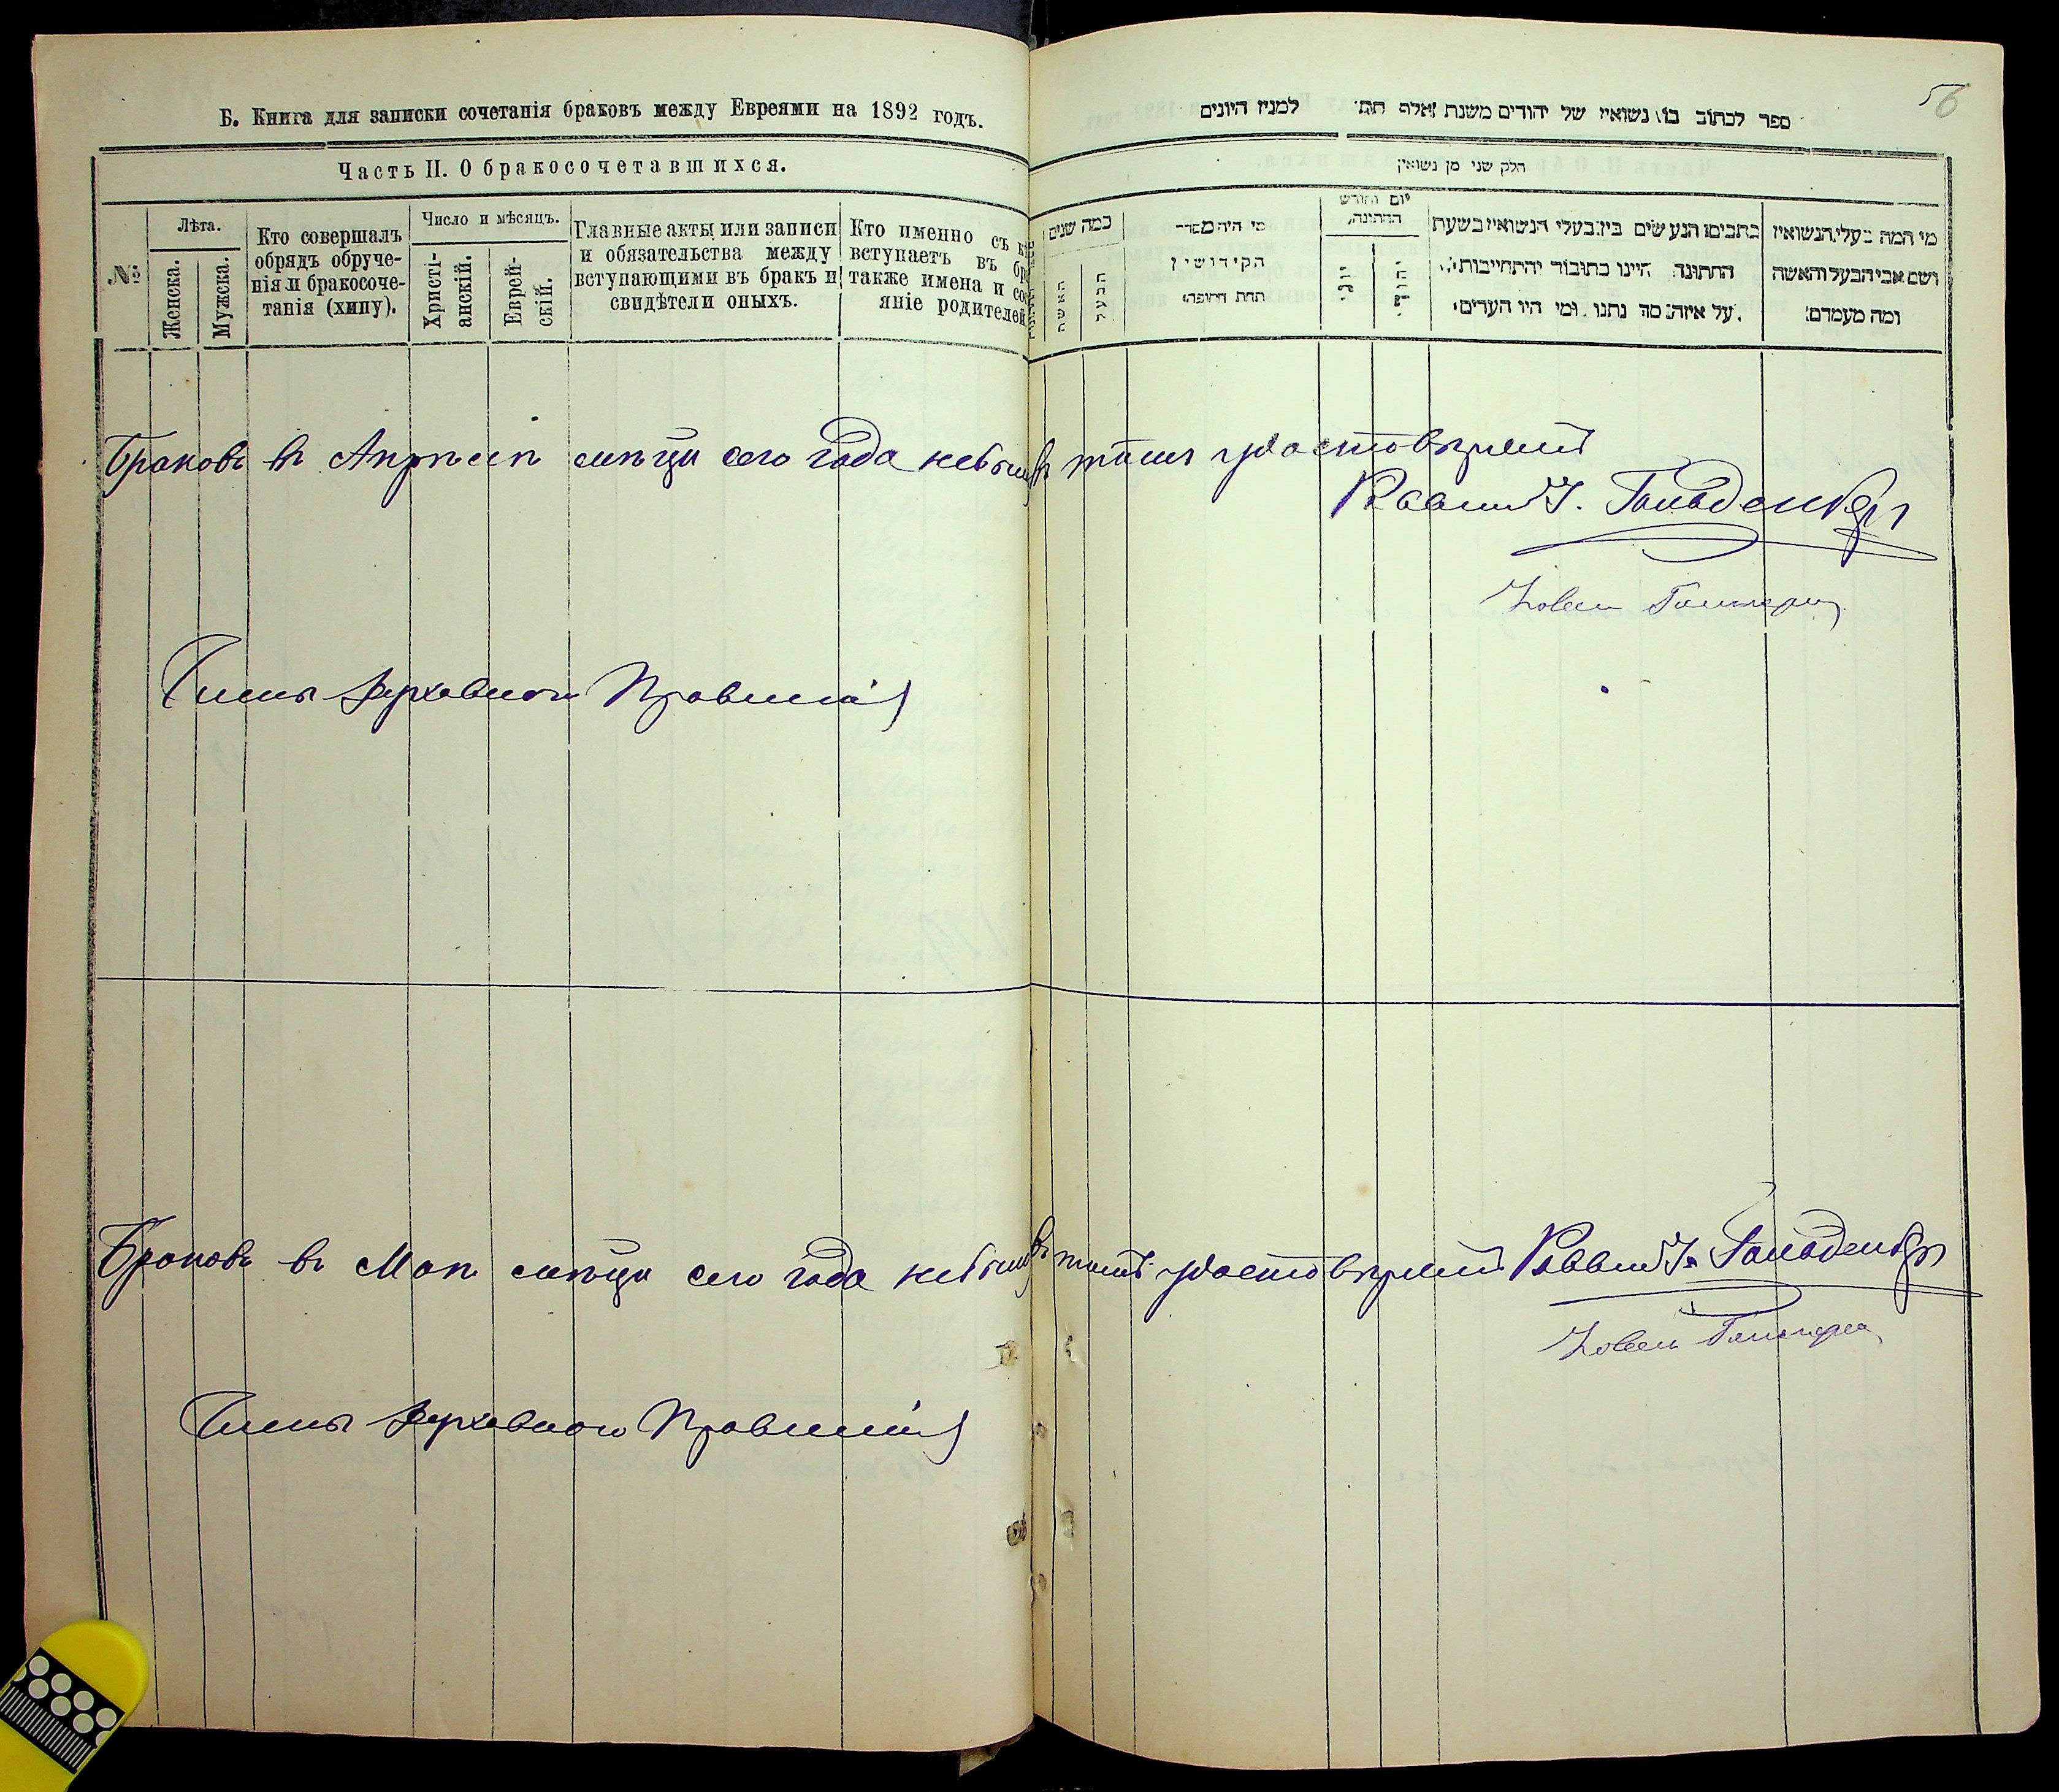 Б. Книга для записки сочетанія браковъ между Евреями на 1892 годъ.
Часть II. О бракосочетавшихся.
№
Лѣта.
Женска.
Мужска.
Кто совершалъ
обрядъ обруче-
нія и бракосоче-
танія (хипу).
Число и мѣсяцъ.
Христі-
анскій.
Еврей-
скій.
Главные акты или записи
и обязательства между
вступающими въ бракъ и
свидѣтели оныхъ.
Кто именно съ
вступаетъ въ
также имена и
яніе родителей
56
ספר לכתוב בו נשואין של יהודים משנת למנין היונים
חלק שני מן נשואין
כמה שנים
האשה
הבעל
מי היה מסדר
הקידושין
תחת החופה
יום וחודש
החתונה
בתבים הנעשים בין בעלי הנשואין בשעת
החתונה היינו כתובור והתחייבות
על איזה סך נתנו ומי היו העדים
מי המה בעלי הנשואין
ושם אבי הבעל והאשה
ומה מעמדם
Браковъ въ Апрѣлѣ мѣсяцѣ сего года небыло въ томъ удостовѣряемъ
Раввинъ І. Гольденберг
Члены Духовного Правленія
Браковъ въ Маѣ мѣсяцѣ сего года небыло въ томъ удостовѣряемъ Раввинъ І. Гольденберг
Члены Духовного Правленія